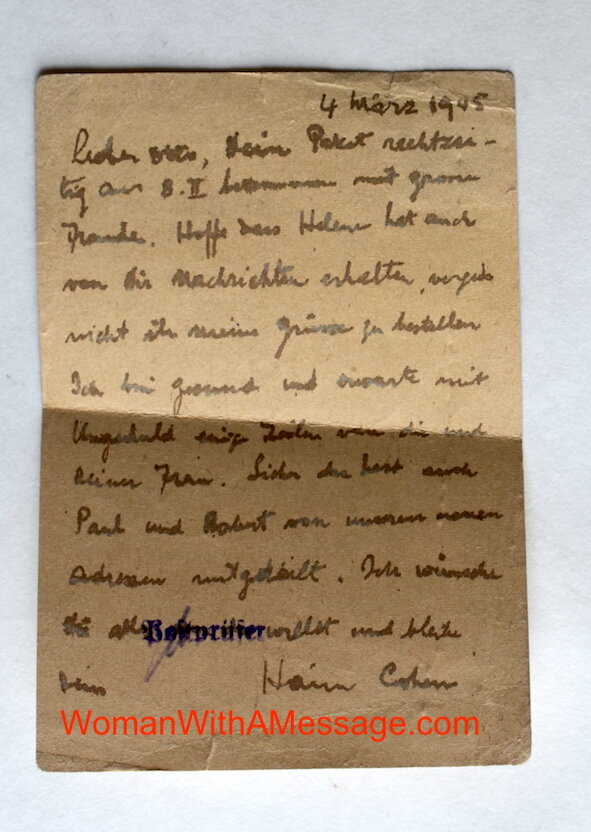 4 März 1945
Lieber Otto, Dein Paket rechtzei-
tig aus B.II bekommen mit grosser
Freude. Hoffe dass Helene hat auch
von dir Nachrichten erhalten, vergiss
nicht ihr meine Grüsse zu bestellen
Ich bin gesund und erwarte mit
Ungeduld einige Zeilen von dir und
deiner Frau. Sicher du hast auch
Paul und Robert von unseren neuen
Adressen mitgeteilt. Ich wünsche
willst und bleibe
Postprüfer
dein Haim Cohen
WomanWithAMessage.com